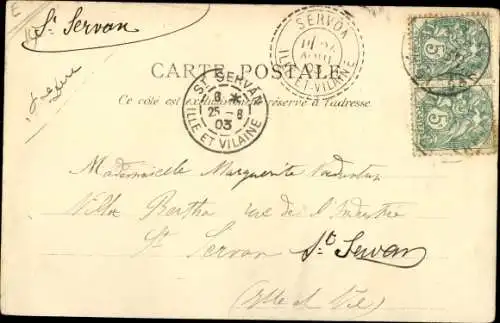 E
St Servan
SERVON
ILLE-ET-VILAINE
CARTE POSTALE
Ce côté est exclusivement réservé à l'adresse
ST SERVAN
8
25 - 8
03
ILLE ET VILAINE
5
5
Mademoiselle Marguerite
Villa Bertha rue de l'Industrie
St Servan St Servan
(Ille et Vil)